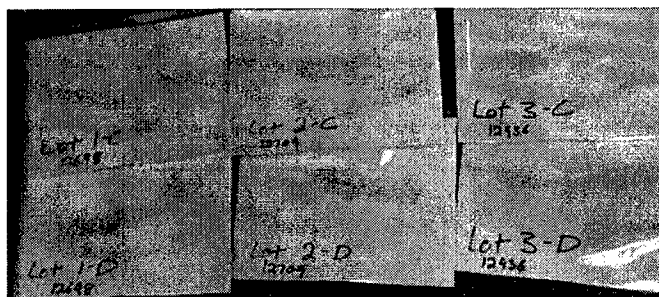 Lot 1-C
12698
Lot 2-C
12709
Lot 3-C
12936
Lot 1-D
12698
Lot 2-D
12709
Lot 3-D
12936